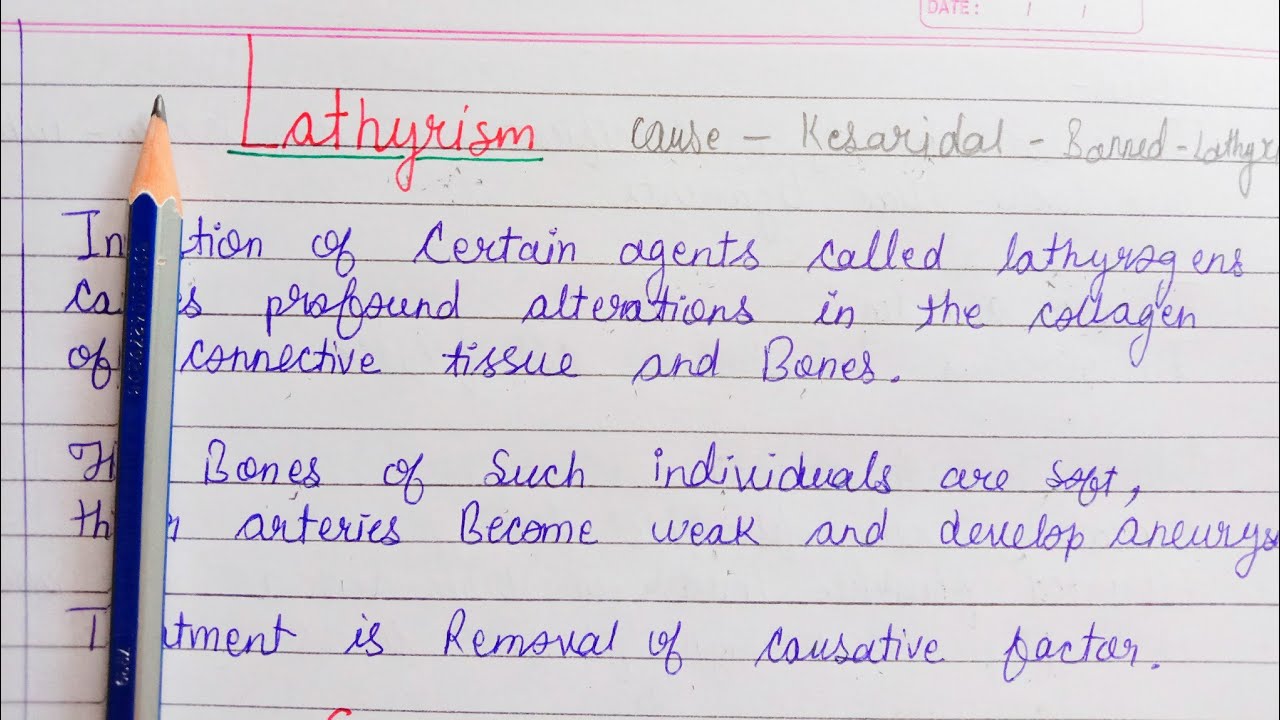 DATE: / /
Lathyrism cause - Kesaridal - Banned - Lathyr
In tion of Certain agents called lathyrogens
ca s profound alterations in the collagen
of connective tissue and Bones.
Bones of Such individuals are soft,
thi r arteries Become weak and develop aneurys
T atment is Removal of causative factor.